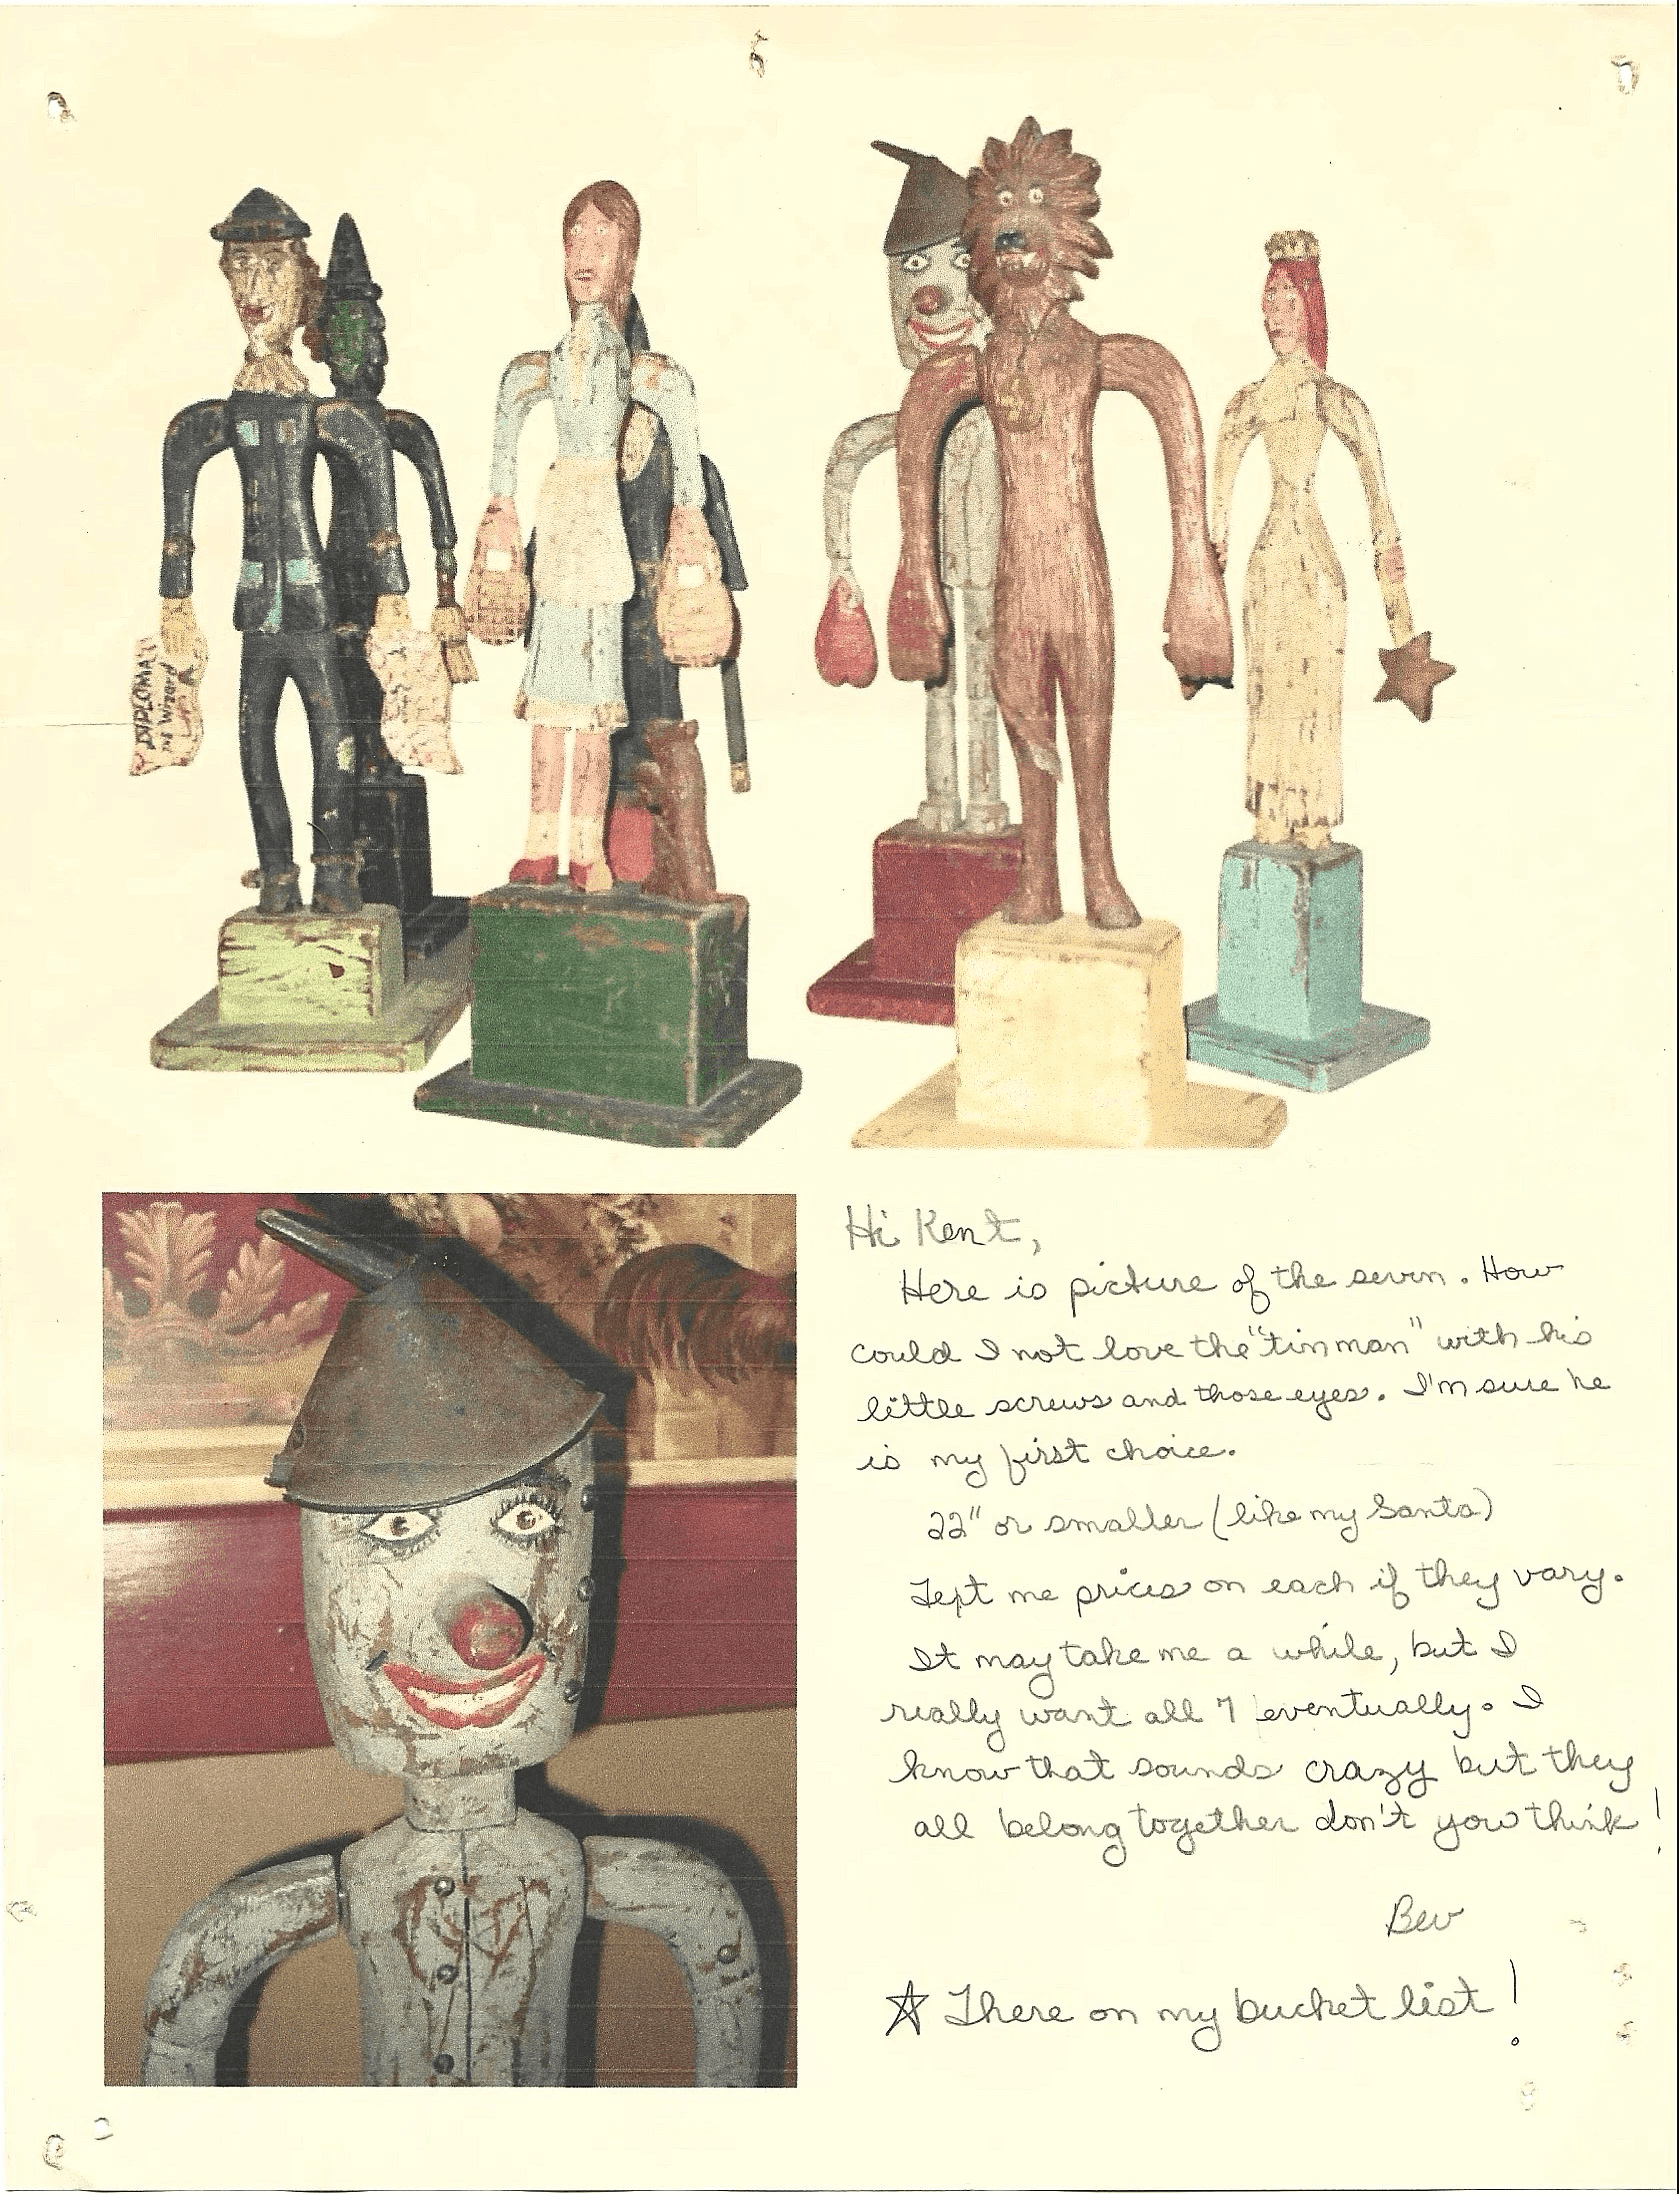 DIPLOMA
The Wizard
Hi Kent,
Here is picture of the seven. How
could I not love the "tin man" with his
little screws and those eyes. I'm sure he
is my first choice.
22" or smaller (like my Santa)
Text me prices on each if they vary.
It may take me a while, but I
really want all 7 eventually. I
know that sounds crazy but they
all belong together don't you think!
Bev
☆ There on my bucket list!